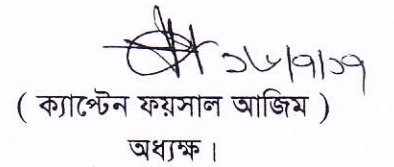 ১৮/৭/১৭
( ক্যাপ্টেন ফয়সাল আজিম )
অধ্যক্ষ।